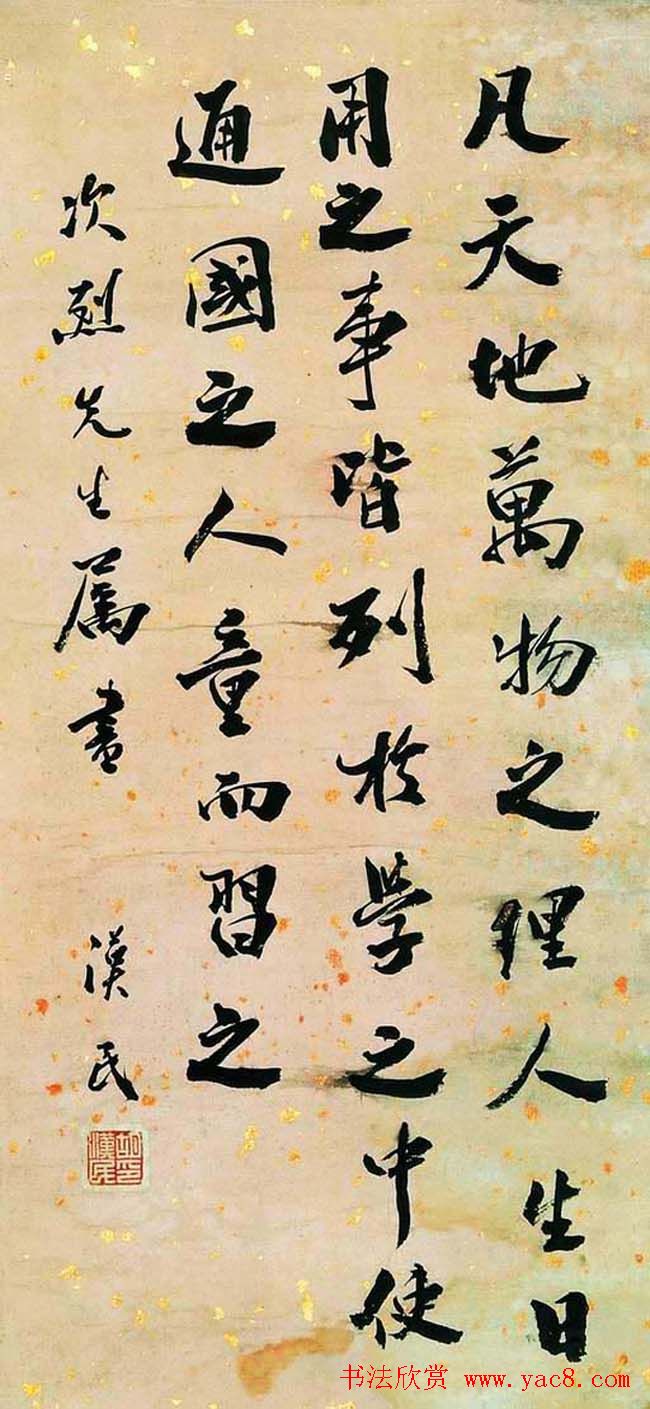 凡天地萬物之理人生日
用之事皆列於學之中使
通國之人童而習之
次烈先生属書
漢民
胡漢民印
书法欣赏 www.yac8.com